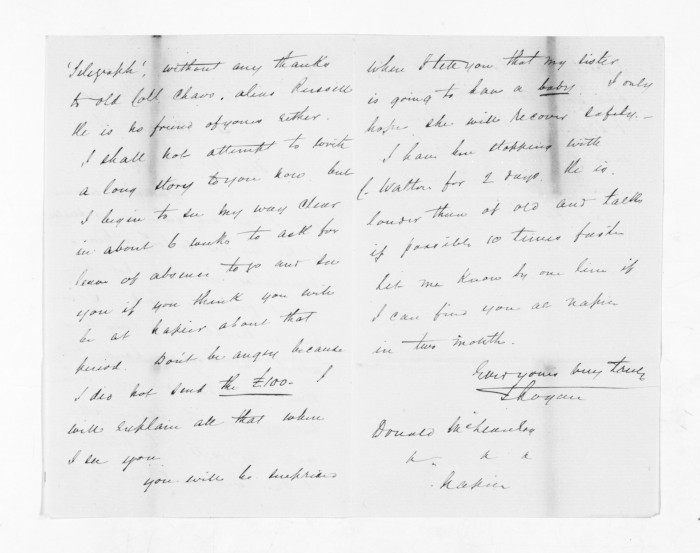 'Telegraph', without any thanks
to old Coll Chaos, alias Russell
He is no friend of yours either.
I shall not attempt to write
a long story to you now but
I begin to see my way clear
in about 6 weeks to ask for
leave of absence to go and see
you if you think you will
be at Napier about that
period. Don't be angry because
I did not send the £100- I
will explain all that when
I see you.
you will be surprised
when I tell you that my sister
is going to have a baby. I only
hope she will recover safely.-
I have been stopping with
C Walton for 2 days. He is
louder than of old and talks
if possible 10 times faster
Let me know by one line if
I can find you at Napier
in two month.
Ever yours very truly
S Logan
Donald McLean Esq
Napier